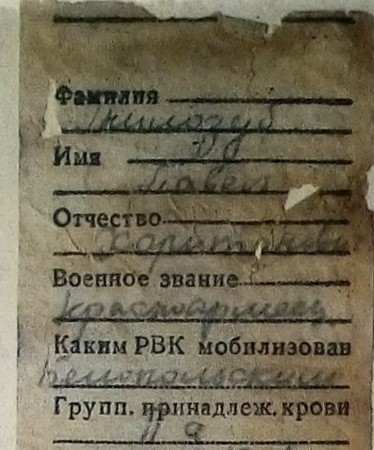 Фамилия
Гнилозуб
Имя
Павел
Отчество
Харитонови
Военное звание
красноармеец
Каким РВК мобилизован
Белопольским
Групп. принадлеж. крови
II я